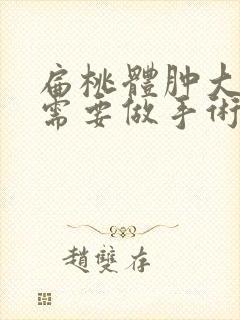 扁桃體肿大
需要做手術
趙雙存